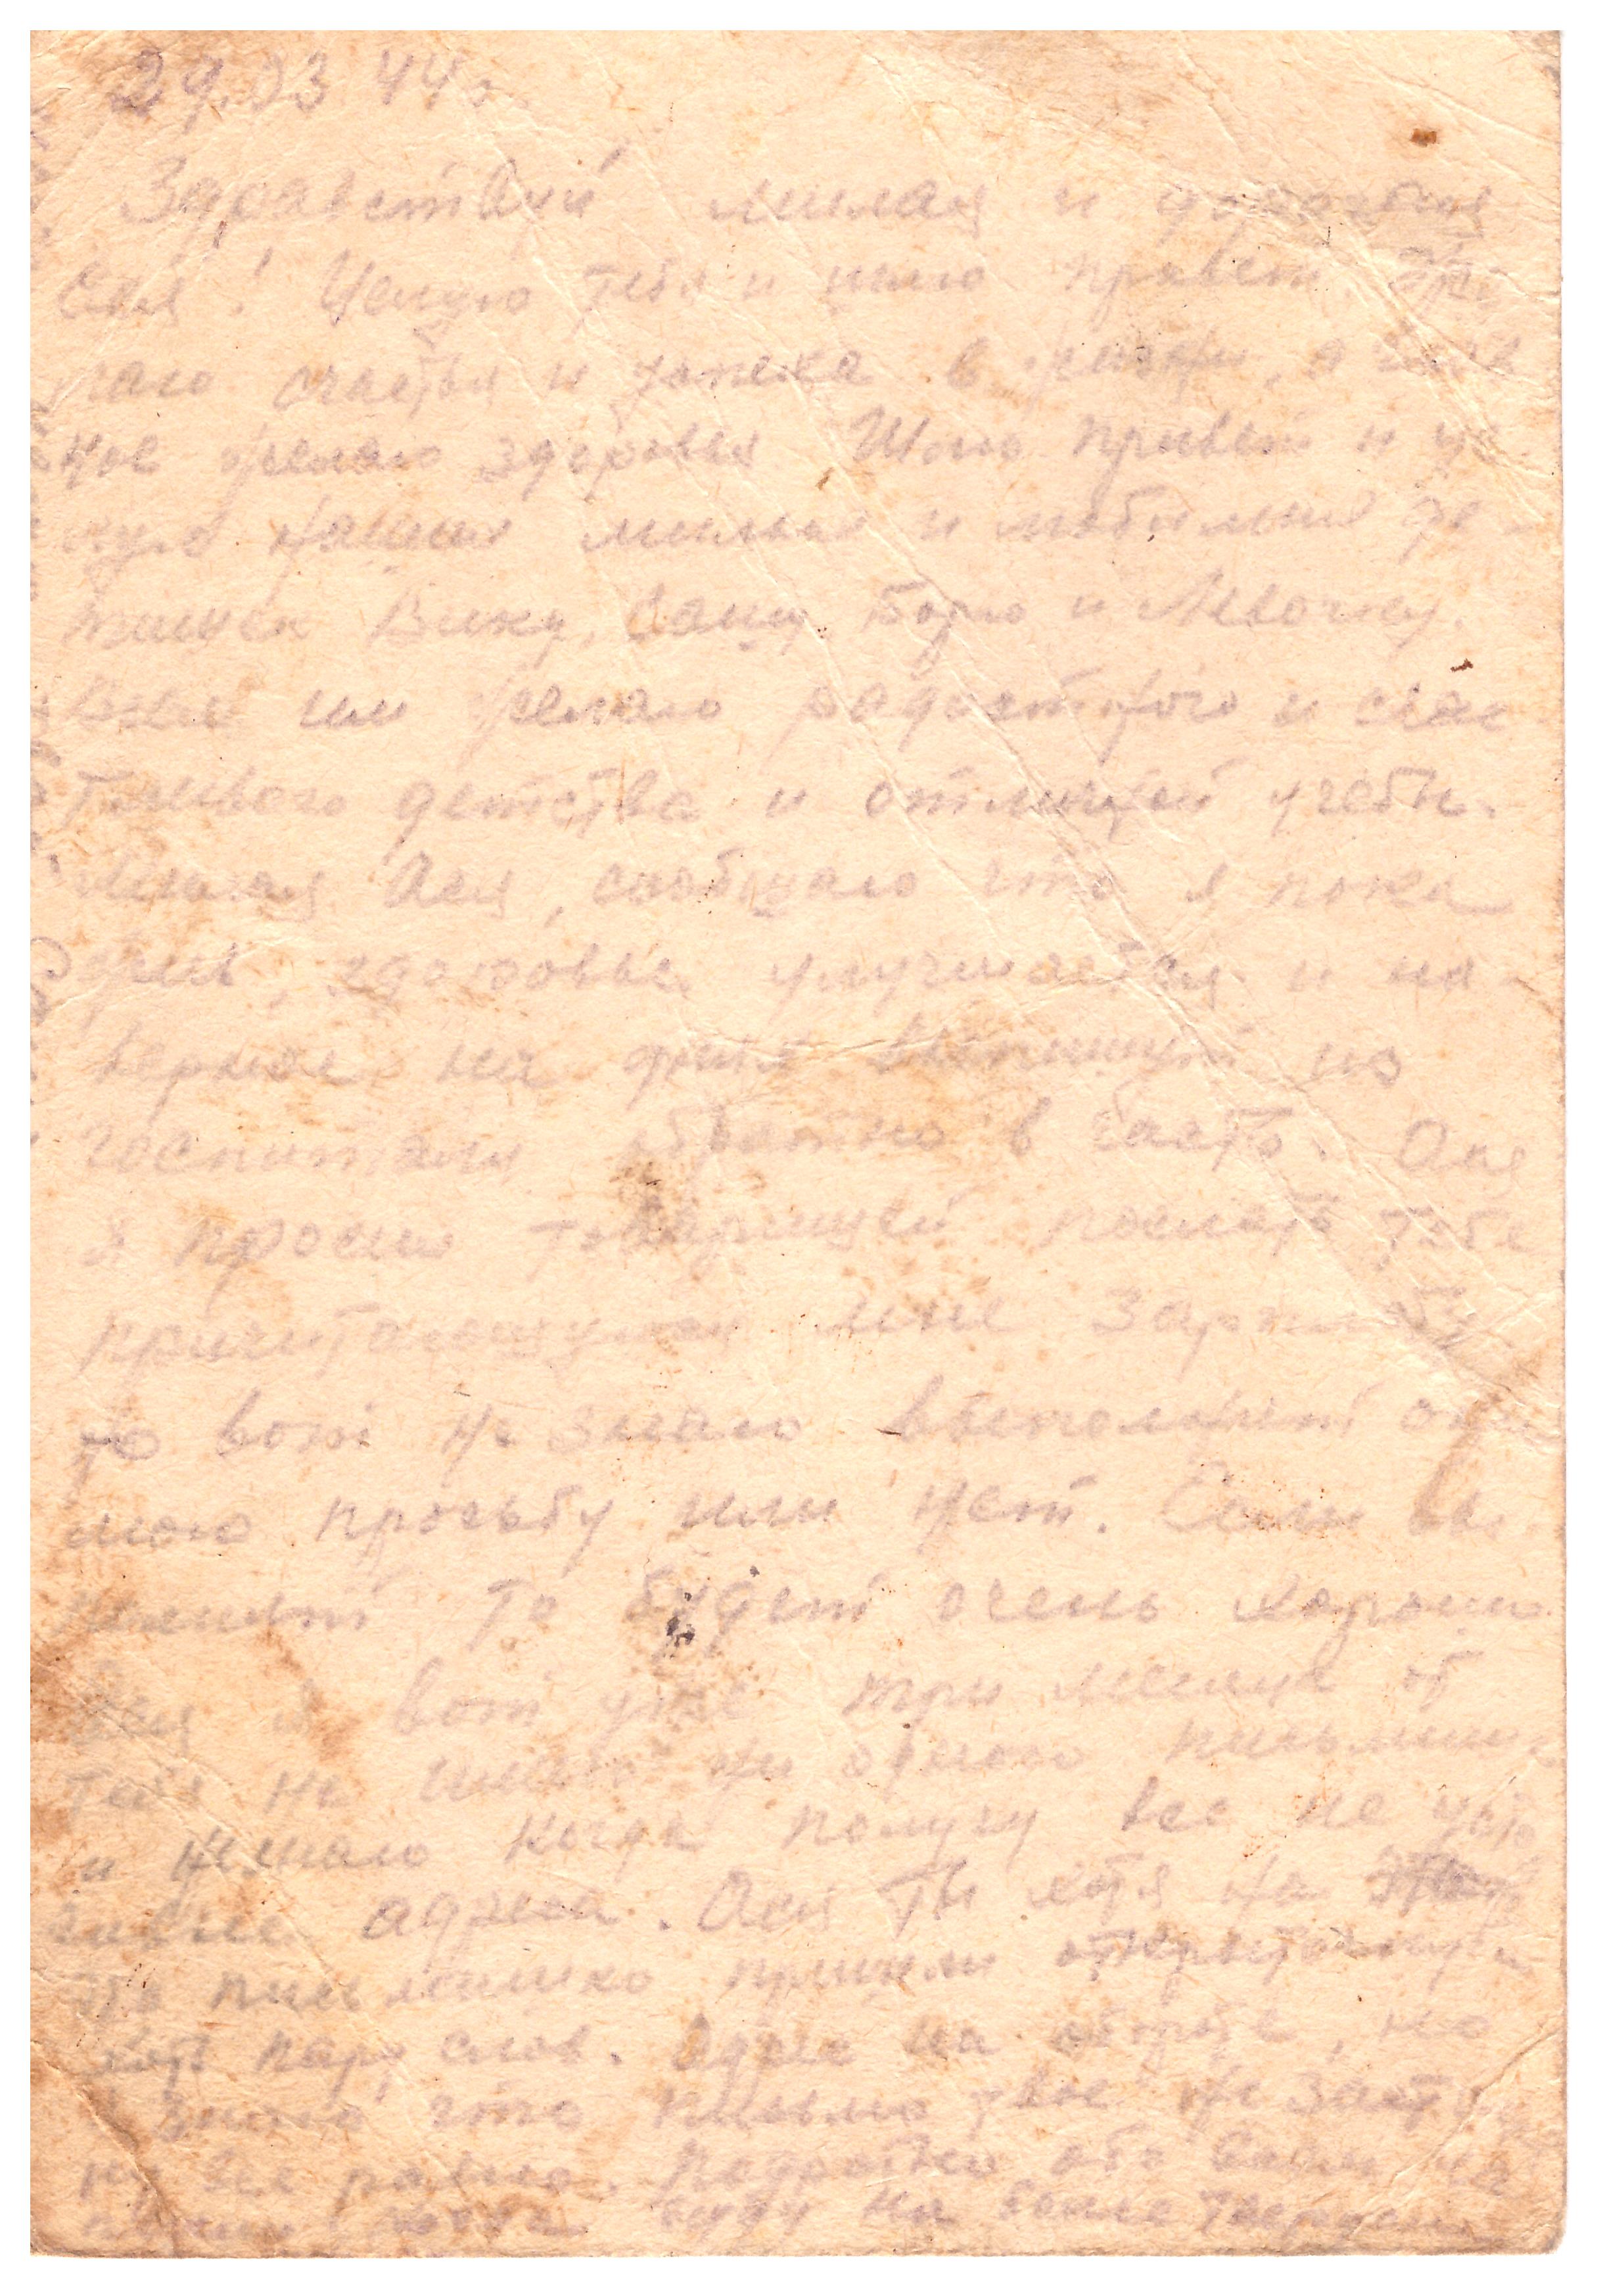 29.03 44 г.
Здравствуй милая и дорогая
Ася! Целую тебя и шлю привет. Же-
лаю счастья и успеха в жизни, а глав
ное желаю здоровья Шлю привет и це-
лую наших милых и любимых де-
тишек Вику, Сашу, Борю и Лёвочку.
Всем им желаю радостного и счас
тливого детства и отличной учебы.
Милая Ася, сообщаю что я пока
жив, здоровье улучшается и на-
верное на днях выпишут из
госпиталя обратно в часть. Ася
я просил товарищей послать тебе
причитающуюся мне зарплату
то вот не знаю выполнят они
мою просьбу или нет. Если вы-
полнят то будет очень хорошо.
Ася я вот уже три месяца от
тебя не имею ни одного письмишка
и не знаю когда получу все не
адреса. Ася ты хотя на это
письмишко пришли открыточку
хоть пару слов. Адрес на обороте, но
знаю что письмо твое не застанет
ну все равно. Подробно обо всем на
пишу когда буду на более твердом